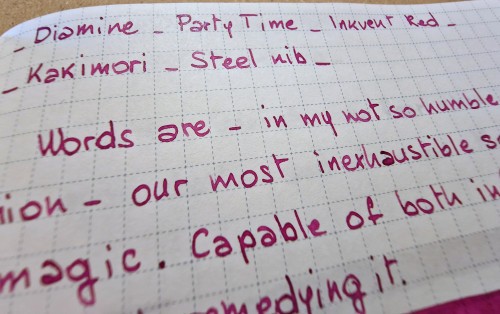 - Diamine - Party Time - Inkvent Red -
- Kakimori - Steel nib -
Words are - in my not so humble
- our most inexhaustible
magic. Capable of both
it.